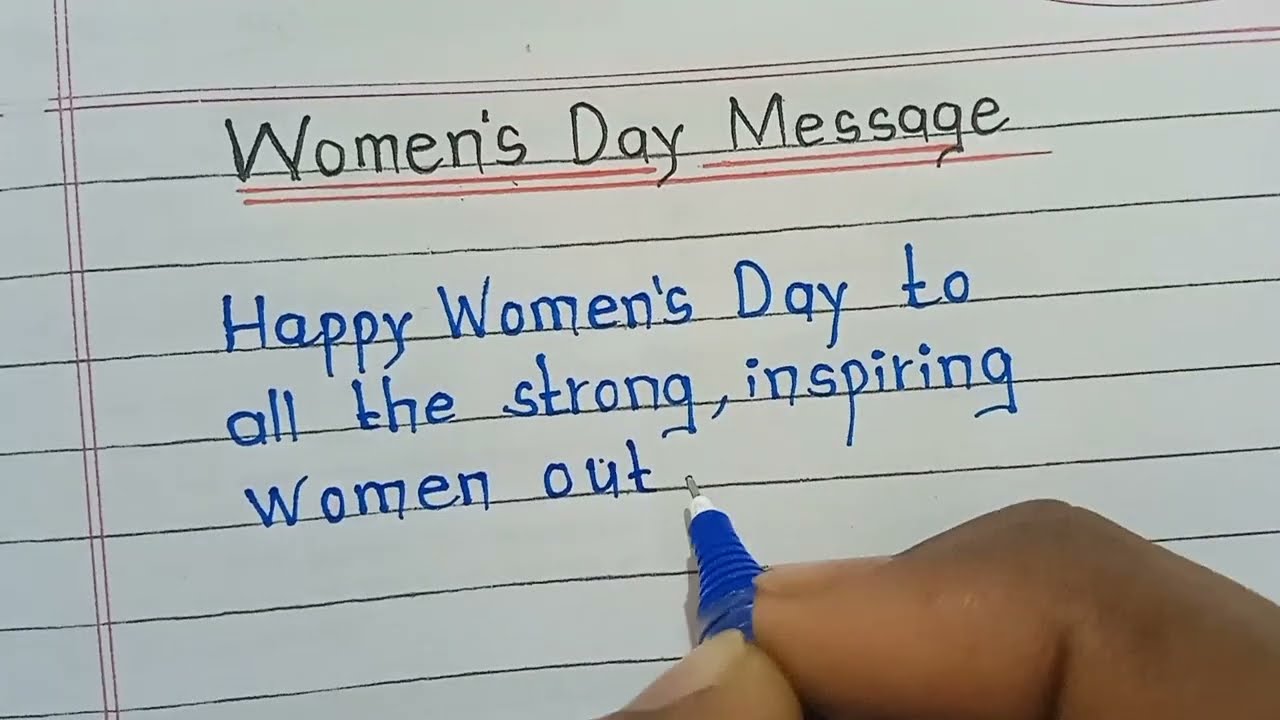 Women's Day Message
Happy Women's Day to
all the strong, inspiring
Women out